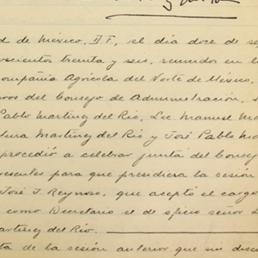 d de México, D.F., el día doce de se
oscientos treinta y seis, reunidos en l
ompañía Agrícola del Norte de México,
ros del Consejo de Administración, s
Pablo Martínez del Río, Lic. Manuel M
lura Martínez del Río y José Pablo M
procedió a celebrar junta del Consej
esentes para que presidiera la sesión
José J. Reynoso, que aceptó el cargo
como Secretario el de igual señor
artínez del Río.
ta de la sesión anterior que sin discu